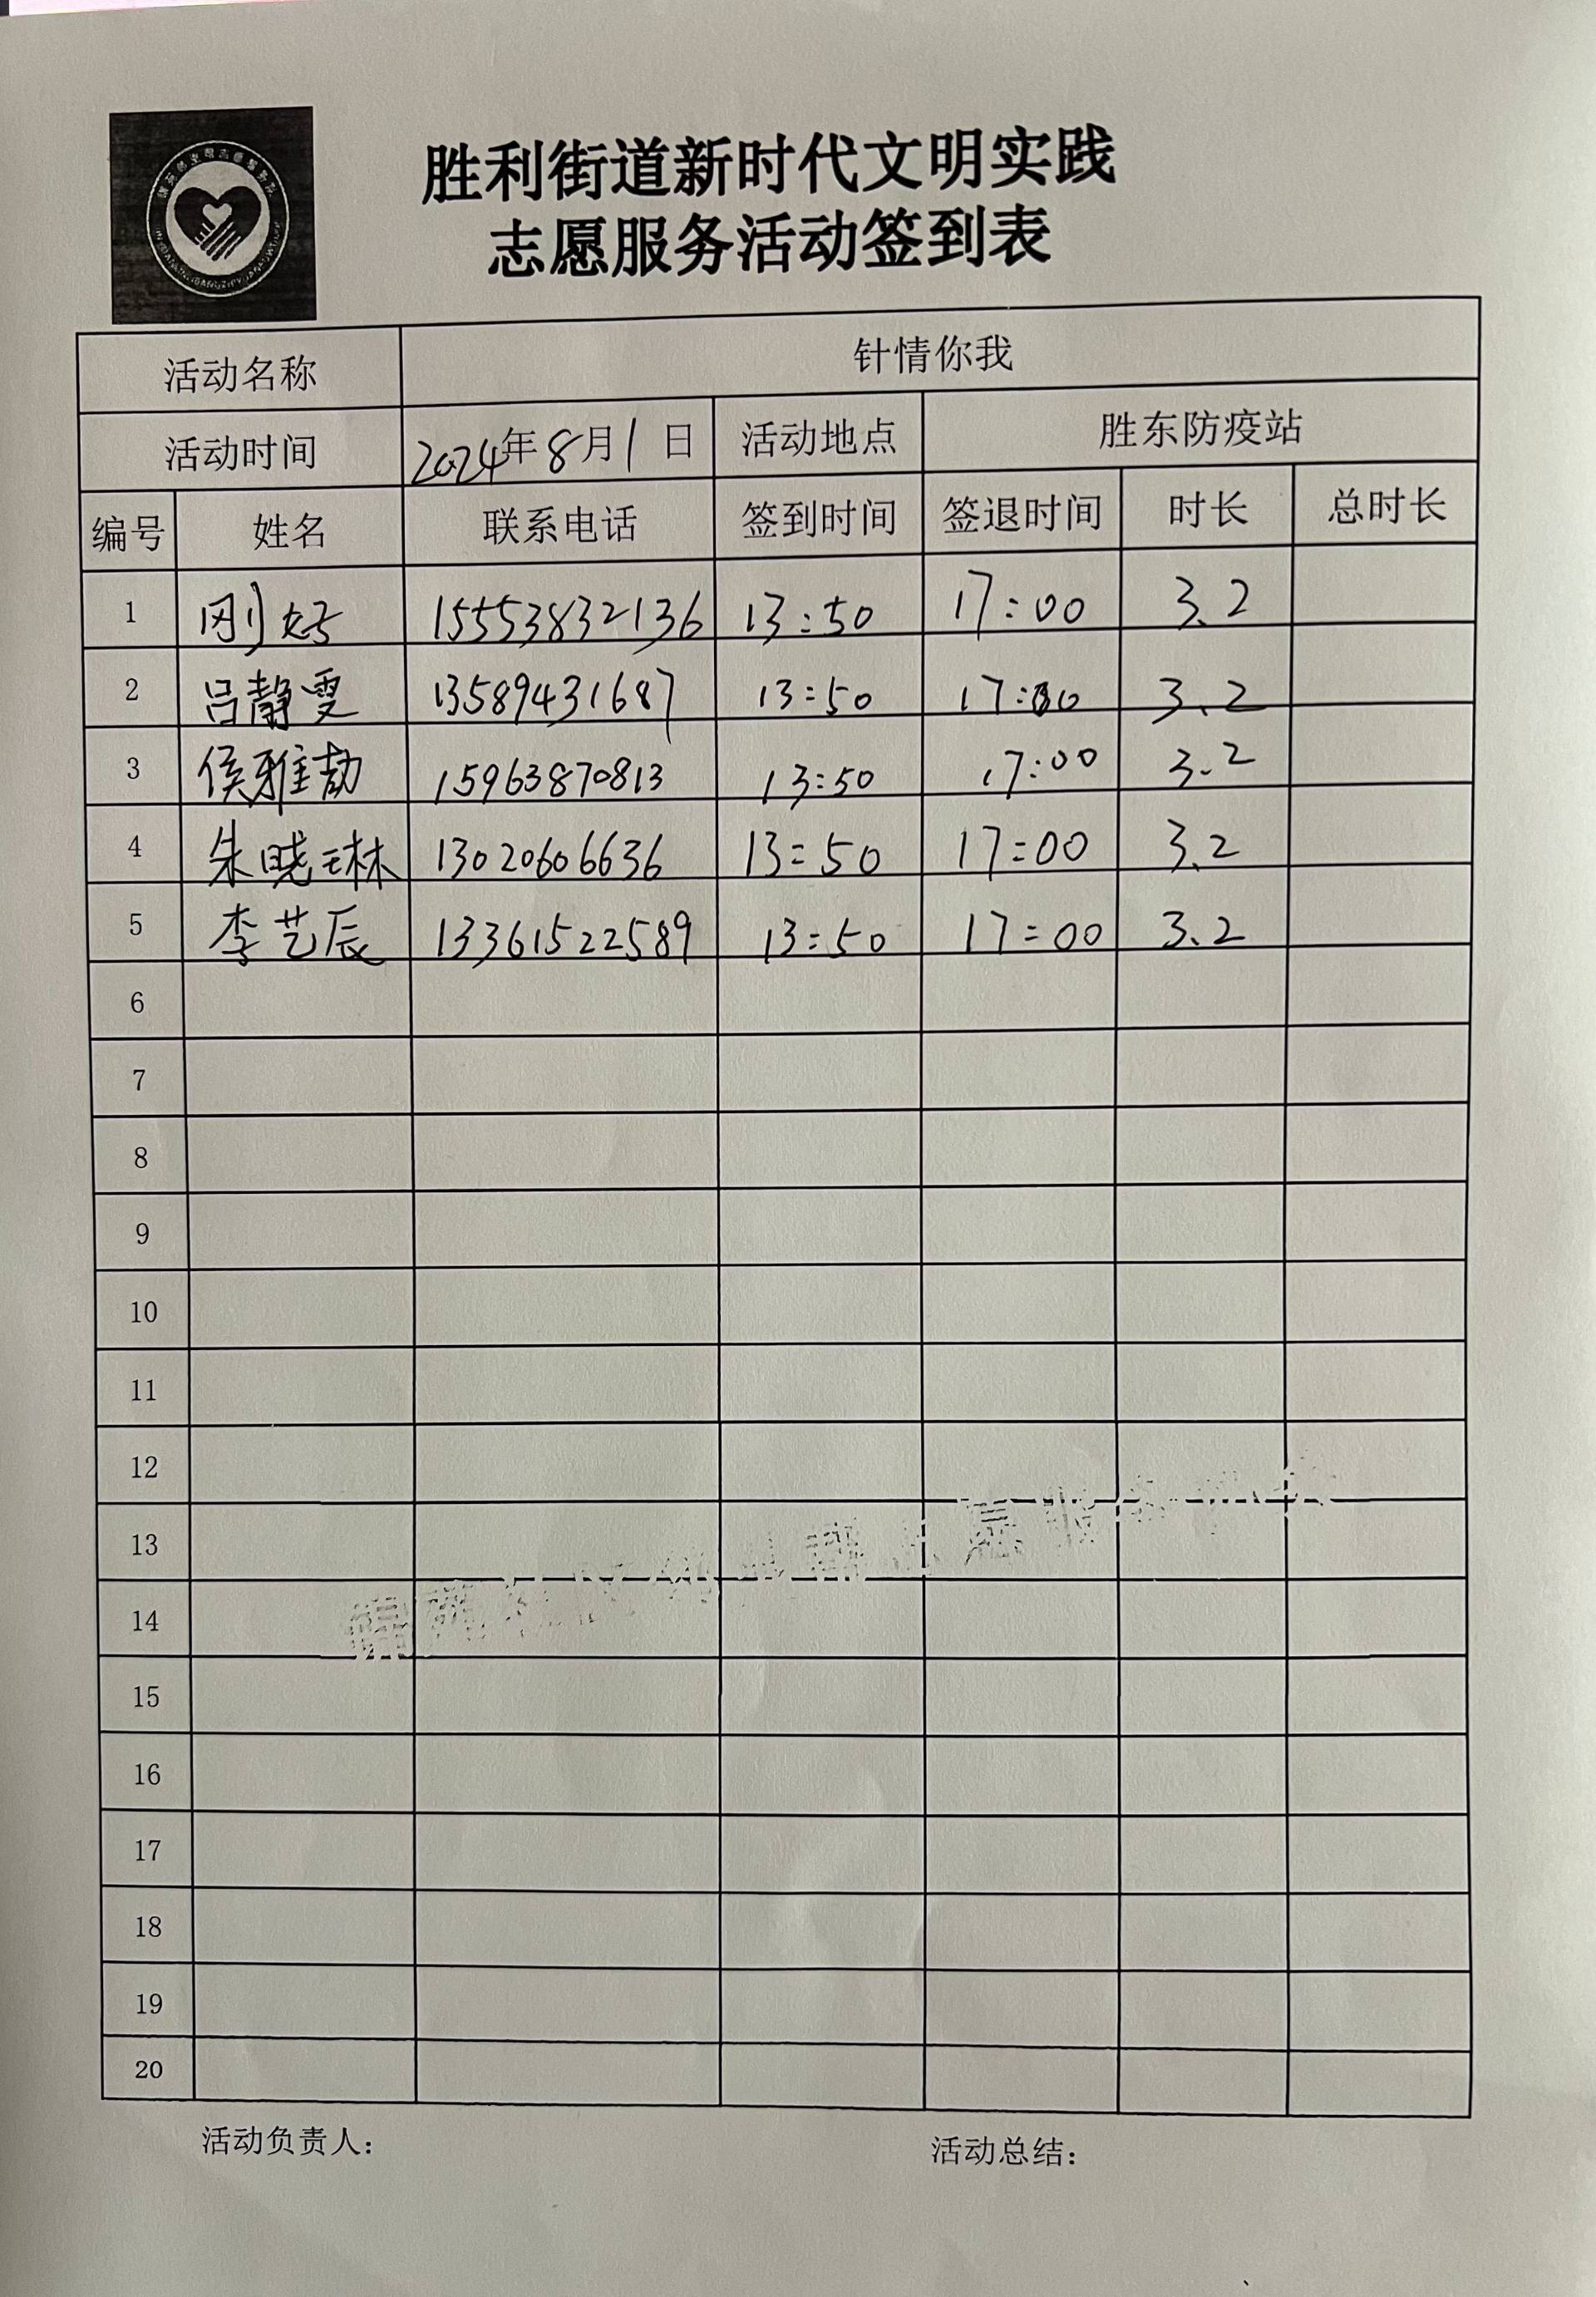 胜利街道新时代文明实践
志愿服务活动签到表
活动名称 针情你我
活动时间 2024年8月1日 活动地点 胜东防疫站
编号 姓名 联系电话 签到时间 签退时间 时长 总时长
1 刚好 15553832136 13:50 17:00 3.2
2 吕静雯 13589431687 13:50 17:00 3.2
3 侯雅劼 15963870813 13:50 17:00 3.2
4 朱晓琳 13020606636 13:50 17:00 3.2
5 李艺辰 13361522589 13:50 17:00 3.2
6
7
8
9
10
11
12
13
14
15
16
17
18
19
20
活动负责人： 活动总结：